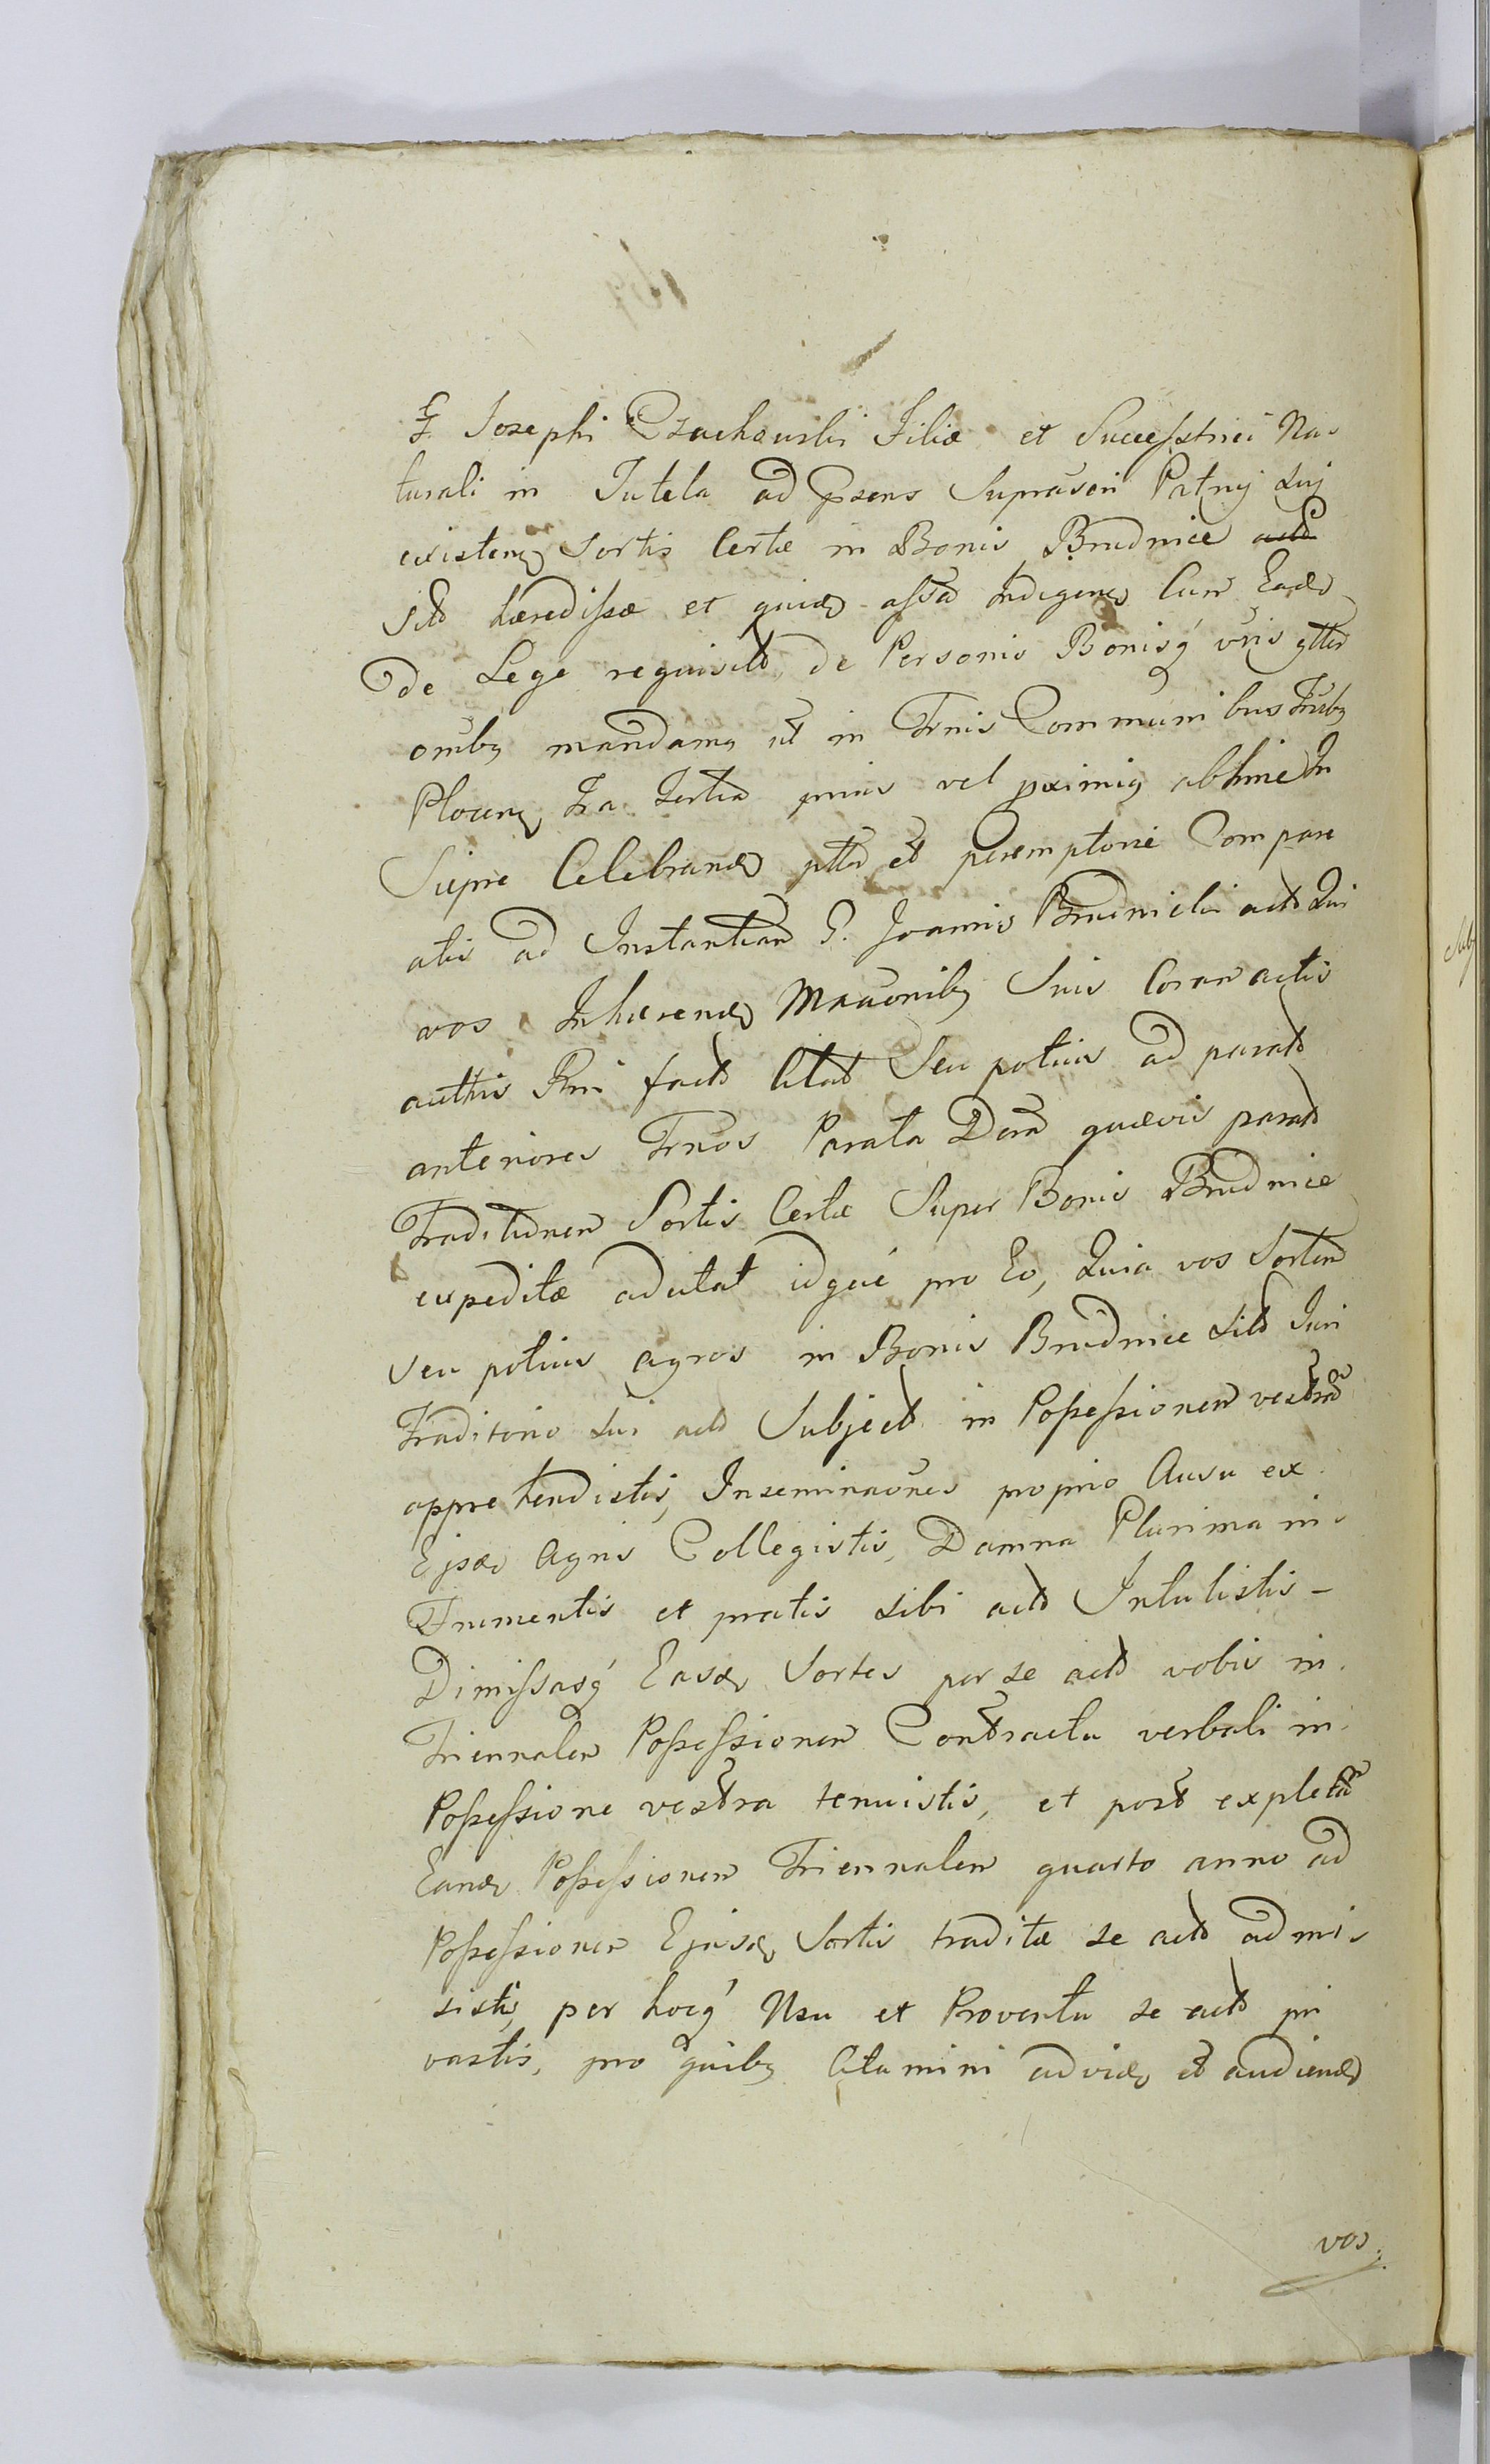 G. Josephi Czachowski Filiæ et Successtrici Na-
turali in Tutela ad prsens Suprascri Patrui Sui
existens Sortis Certæ in Bonis Brudnice
Sit hæredissæ et quid assa Indigens Cum Ead
De Lege requisit de Personis Bonisq vris gtter
omibg mandamg ut in Trnis Communibus Trrbg
Plocens Fra Tertia pmis vel pximis abhinc In
Sierpc Celebrand pttr et peremptorie Compare
atis ad Instantiam G. Joannis Brudnicki act Qui
vos Inhærend Mraonibg Suis Coram actis
authis Rni fact Citat Seu potius ad parat
anteriores Trnos Parata Dora quævis parat
Traditionem Sortis Certæ Super Bonis Brudnice
expeditæ adcitat idque pro Eo, Quia vos Sortem
seu potius agros in Bonis Brudnice Sit Juri
Traditorio Sui act Subject in Possessionem vestram
apprehendistis, Inseminaones proprio Ausu ex
Ejsd Agris Collegistis, Damna Plurima in
Frumentis et pratis Sibi act Intulistis -
Dimissasq Easd Sortes per se act vobis in
Triennalem Possessionem Contractu verbali in
Possessione vestra tenuistis, et post expletam
Eand Possessionem Triennalem quarto anno ad
Possessionem Ejusd Sortis traditæ se act admi-
sistis, per hocq Usu et Proventu se act pri
vastis, pro quibg Citamini advid et audiend
vos